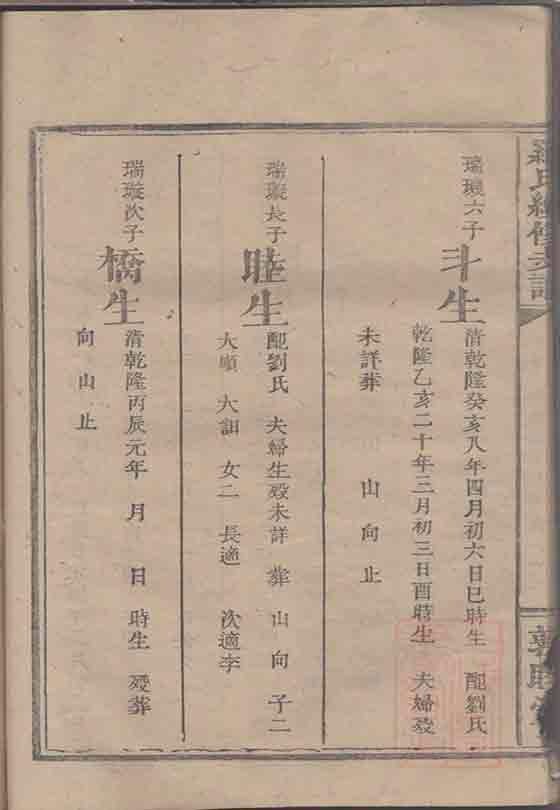 羅氏經修支譜
敦睦堂
瑞璇六子
斗生
清乾隆癸亥八年四月初六日巳時生 配劉氏
乾隆乙亥二十年三月初三日酉時生 夫婦歿
未詳葬 山向止
瑞璇長子
睦生
配劉氏 夫婦生歿未詳 葬 山向 子二
大順 大詔 女二 長適 次適李
瑞璇次子
橋生
清乾隆丙辰元年 月 日 時生 歿葬
向山止